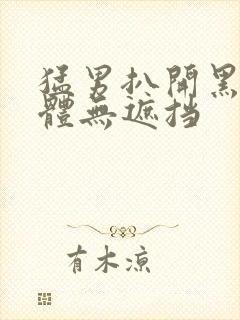 猛男扒開黑
體無遮挡
有木凉